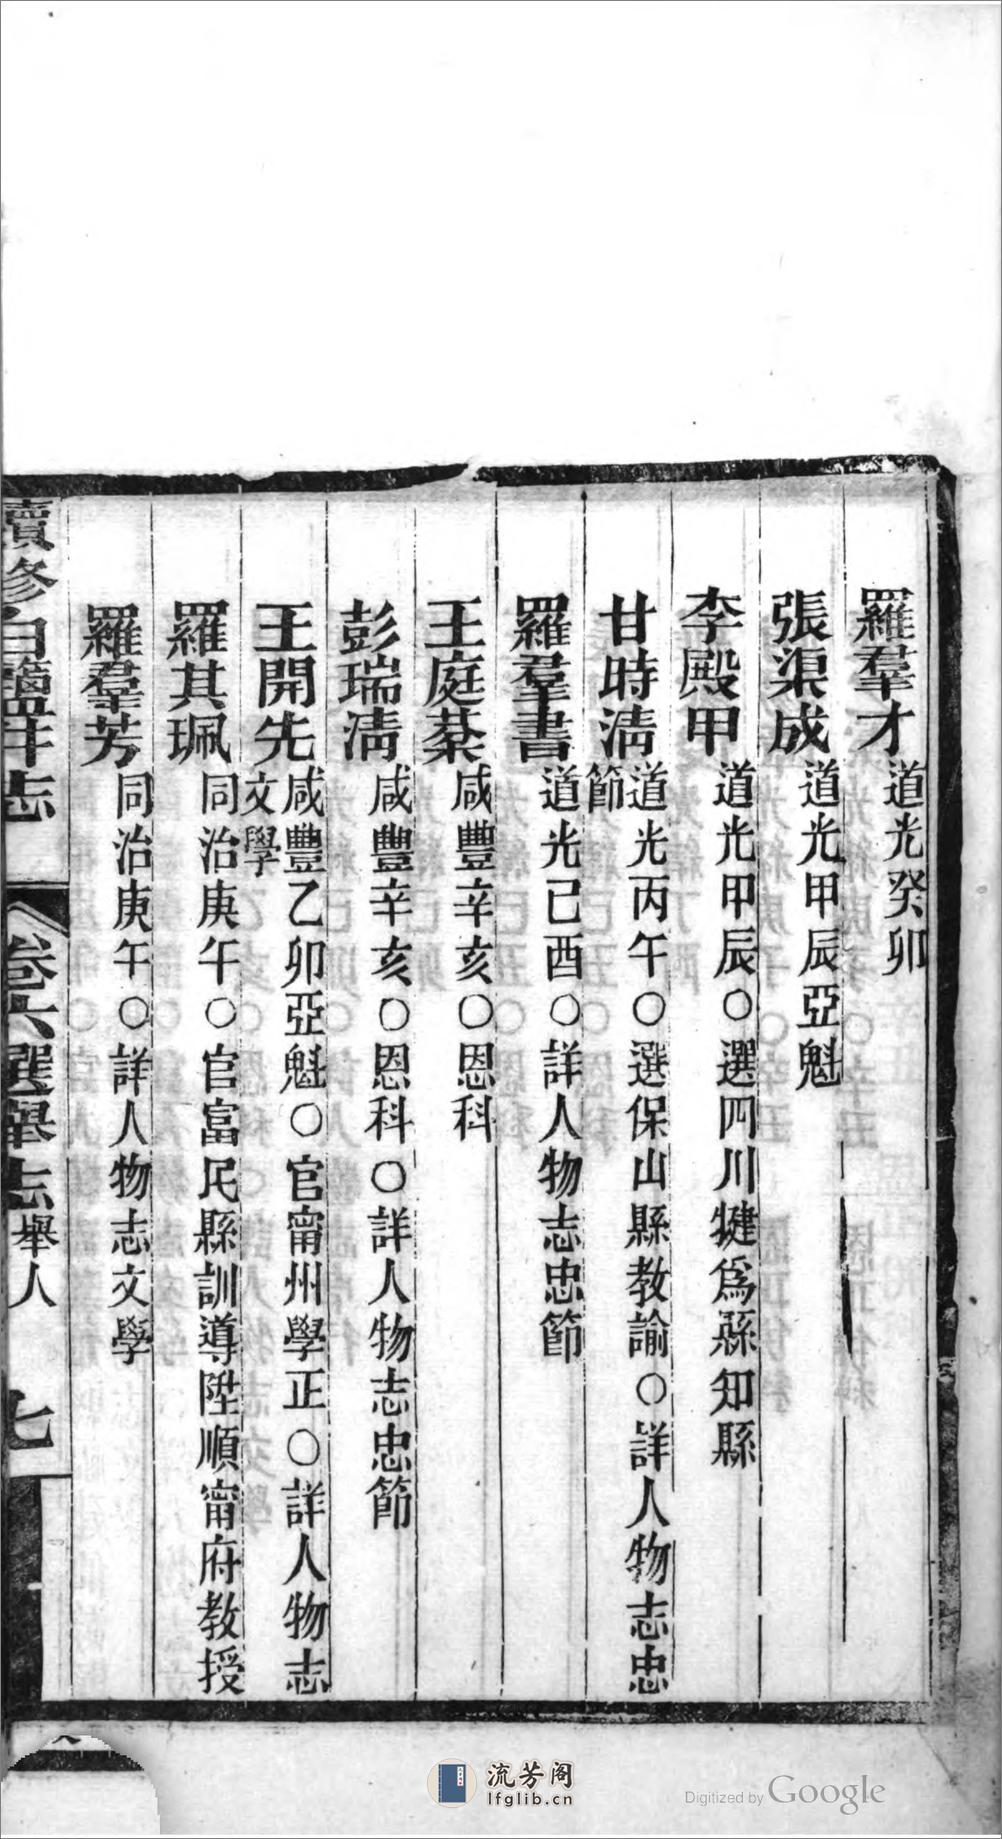 羅羣才 道光癸卯
張渠成 道光甲辰亞魁
李殿甲 道光甲辰○選四川犍爲縣知縣
甘時清 道光丙午○選保山縣教諭○詳人物志忠
節
羅羣書 道光已酉○詳人物志忠節
王庭棻 咸豐辛亥○恩科
彭瑞清 咸豐辛亥○恩科○詳人物志忠節
王開先 咸豐乙卯亞魁○官甯州學正○詳人物志
文學
羅其珮 同治庚午○官富民縣訓導陞順甯府教授
羅羣芳 同治庚午○詳人物志文學
續修白鹽井志 卷六選舉志 舉人 七
流芳阁
lfglib.cn
Digitized by Google